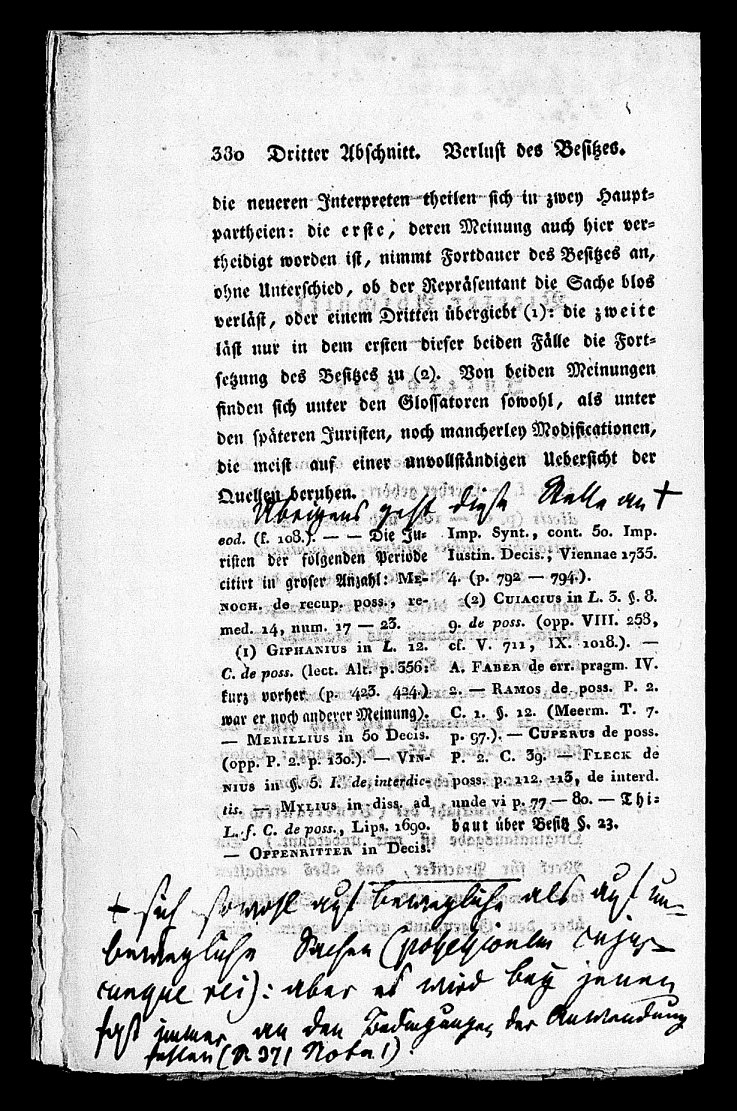 330 Dritter Abschnitt. Verlust des Besitzes.
die neueren Interpreten theilen sich in zwey Haupt-
partheien: die erste, deren Meinung auch hier ver-
theidigt worden ist, nimmt Fortdauer des Besitzes an,
ohne Unterschied, ob der Repräsentant die Sache blos
verläßt, oder einem Dritten übergiebt (1): die zweite
läßt nur in dem ersten dieser beiden Fälle die Fort-
setzung des Besitzes zu (2). Von beiden Meinungen
finden sich unter den Glossatoren sowohl, als unter
den späteren Juristen, noch mancherley Modificationen,
die meist auf einer unvollständigen Uebersicht der
Quellen beruhen.
Übrigens geht diese Stelle an +
eod. (f. 108.). — — Die Ju-
risten der folgenden Periode
citirt in großer Anzahl: ME-
NOCH. de recup. poss., re-
med. 14, num. 17 — 23.
(1) GIPHANIUS in L. 12.
C. de poss. (lect. Alt. p. 356;
kurz vorher (p. 423. 424.)
war er noch anderer Meinung).
— MERILLIUS in 50 Decis.
(opp. P. 2. p. 130.). — VIN-
NIUS in §. 5. I. de interdic-
tis. — MYLIUS in diss. ad
L. f. C. de poss., Lips. 1690.
— OPPENRITTER in Decis.
Imp. Synt., cont. 50. Imp.
Iustin. Decis., Viennae 1735.
4. (p. 792 — 794.).
(2) CUIACIUS in L. 3. §. 8.
9. de poss. (opp. VIII. 258,
cf. V. 711, IX. 1018.). —
A. FABER de err. pragm. IV.
2. — RAMOS de poss. P. 2.
C. 1. §. 12. (Meerm. T. 7.
p. 97.). — CUPERUS de poss.
P. 2. C. 39. — FLECK de
poss. p. 112. 113, de interd.
unde vi p. 77 — 80. — Thi-
baut über Besitz §. 23.
+ sich sowohl auf bewegliche als auf un-
bewegliche Sachen (possessionem cujus-
cunque rei): aber es wird bey jenen
fast immer an den Bedingungen der Anwendung
fehlen (S. 371 Note 1).